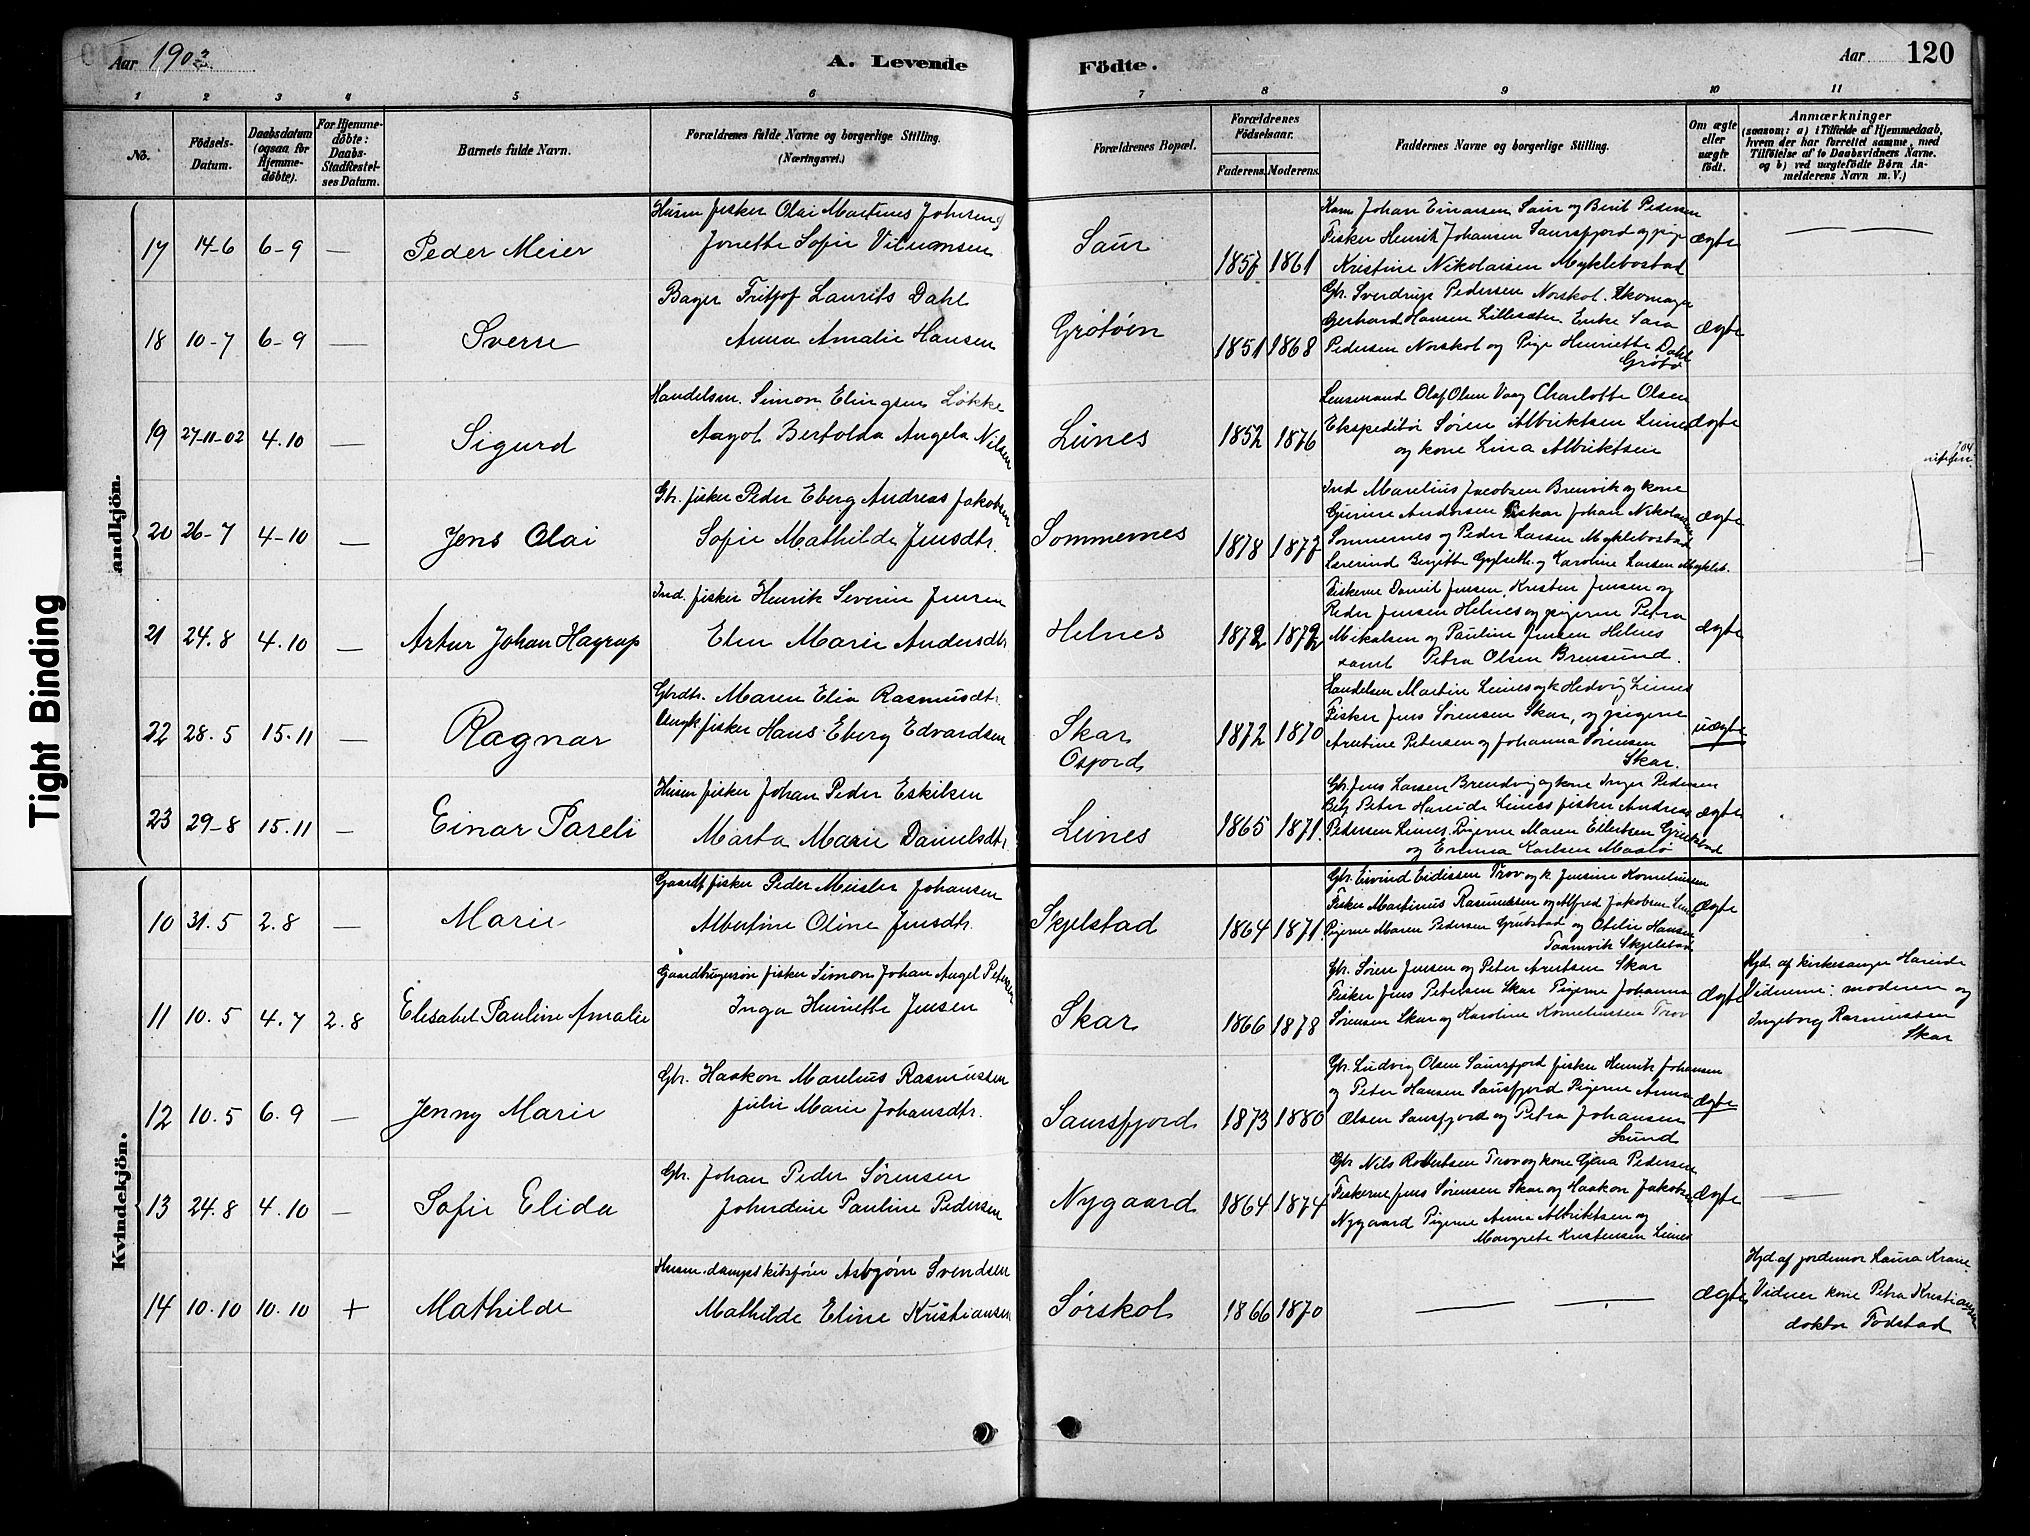 Aar 1903
A. Levende
Födte.
Aar
120
1 2 3 4 5 6 7 8 9 10 11
No.
Födsels-
Datum.
Daabsdatum
(ogsaa for
Hjemme-
döbte).
For Hjemme-
döbte:
Daabs-
Stadfæstel-
ses Datum.
Barnets fulde Navn.
Forældrenes fulde Navne og borgerlige Stilling.
(Næringsvei.)
Forældrenes Bopæl.
Forældrenes
Födselsaar.
Faderens. Moderens.
Faddernes Navne og borgerlige Stilling.
Om ægte
eller
uægte
födt.
Anmærkninger
(saasom: a) i Tilfælde af Hjemmedaab,
hvem der har forrettet samme, med
Tilföielse af to Daabsvidners Navne.
og b) ved uægtefödte Börn An-
melderens Navn m. V.)
Tight Binding
andkjön.
17 14-6 6-9 — Peder Meier
Husm fisker Olai Martines Johnsen
Jonette Sofie Vilumsen
Saur 1857 1861
Kaarm Johan Einarsen Saur og Berit Pedersen
Fisker Henrik Johansen Saursfjord og pige
Kristine Nikolaisen Myklebostad
ægte — —
18 10-7 6-9 — Sverre
Bager Fritjof Laurits Dahl
Anna Amalie Hansen
Grøtøen 1851 1868
Gbr. Sverdrup Pedersen Norskot. Skomager
Gerhard Hansen Lillesæter. Enke Sara
Pedersen Norskot og Pige Henriette Dahl
Grøtø
ægte
19 27-11-02 4.10 — Sigurd
Handelsm. Simon Elingsen Løkke
Aagot Bertolda Angela Nilsen
Leines 1852 1876
Lensmand Olaf Olsen Vaag Charlotte Olsen
Ekspeditør Søren Albriktsen Leines
og kone Lina Albriktsen
ægte
20 26-7 4-10 — Jens Olai
Gbr. fisker Peder Eberg Andreas Jakobsen
Sofie Mathilde Jensdtr.
Sommernes 1878 1877
Ind Marelius Jacobsen Brenvik og kone
Gurine Andersen Fisker Johan Nikolaisen
Sommernes og Peder Larsen Myklebostad
Lærerind Bergitte Gylseth. og Karoline Larsen Mykleb.
ægte
21 24.8 4.10 — Artur Johan Hagrup
Ind. fisker Henrik Severin Jensen
Elen Marie Andersdtr
Helnes 1872 1872
Fiskerne Daniel Jensen, Kristen Jensen og
Peder Jensen Helnes og pigerne Petra
Mikalsen og Pauline Jensen Helnes
samt Petra Olsen Brensund.
ægte
22 28.5 15.11 — Ragnar
Gbrdtr. Maren Elia Rasmusdtr.
Ungk fisker Hans Eberg Edvardsen
Skar
Osfjord 1872 1870
Handelsm Martin Leines og k Hedvig Leines
Fisker Jens Sørensen Skar, og pigerne
Arntine Petersen og Johanna Sørensen
Skar.
uægte
23 29-8 15.11 — Einar Pareli
Husm fisker Johan Peder Eskilsen
Marta Marie Danielsdtr.
Leines 1865 1871.
Gbr. Jens Larsen Brendvig og kone Inger Pedersen
Peter Hareide Leines fisker Andreas
Pedersen Leines. Pigerne Maren Eilertsen Grindstad
og Emma Karlsen Maalø
ægte
Kvindekjön.
10 31.5 2.8 — Marie
Gaardbr. fisker Peder Meisler Johansen
Albertine Oline Jensdtr.
Skjelstad 1864 1871.
Gbr. Eivind Eidissen Trov og k. Jensine Korneliussen
Fisker Martinus Rasmussen og Alfred Jakobsen Lund
Pigerne Maren Pedersen Grutstad og Otelie Hansen
Taamvik Skjelstad
ægte
11 10.5 4.7 2.8 Elisabet Pauline Amalie
Gaardbrugersøn fisker Simon Johan Angel Petersen
Inga Henriette Jensen
Skar 1866 1878
Gbr. Søren Jensen og Peter Arntsen Skar
Fisker Jens Petersen Skar Pigerne Johanna
Sørensen Skar og Karoline Korneliussen Trov
ægte
Hjd. af kirkesanger Hareide
Vidnerne: moderen og
Ingeborg Rasmussen
Skar
12 10.5 6.9 — Jenny Marie
Gbr. Haakon Marelius Rasmussen
Julie Marie Johansdtr.
Saursfjord 1873 1880
Gbr. Ludvig Olsen Saursfjord fisker Henrik Johansen
og Peter Hansen Saursfjord Pigerne Anna
Olsen Saursfjord og Petra Johansen
Lund
ægte
13 24.8 4.10 — Sofie Elida
Gbr. Johan Peder Sørensen
Johndine Pauline Pedersen
Nygaard 1864 1874
Gbr Nils Robertsen Trov og kone Gjera Pedersen
Fiskerne Jens Sørensen Skar og Haakon Jakobsen
Nygaard Pigerne Anna Albriktsen og
Margrete Kristensen Leines
ægte —
14 10.10 10.10 + Mathilde
Husm. dampskibsfører Asbjørn Svendsen
Mathilde Eline Kristiansen
Sørskot 1866 1870
— —
ægte
Hjd. af jordemor Laura Krane.
Vidner kone Petra Kristiansen
doktor Todstad